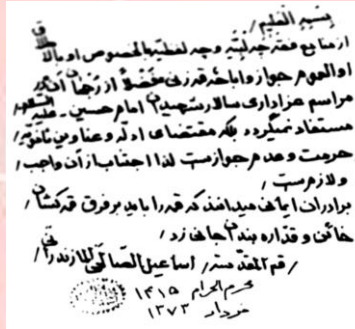 بسمه العلیم
از منابع فقه چه لبیّه و چه لفظیّه بالخصوص او بالاطلاق
او العموم جواز و اباحه قمه زنی مفصّلاً از رجحان آن در
مراسم عزاداری سالار شهیدان امام حسین - علیه السلام
مستفاد نمیگردد بلکه مقتضای ادله و عناوین ثانویّه
حرمت و عدم جواز است لذا اجتناب از آن واجب
و لازم است
برادران ایمانی میدانند که قمه را باید بر فرق قمه کشان
خائن و قداره بندان جانی زد
قم المقدسة اسماعیل الصالحی المازندرانی
محرم الحرام ۱۴۱۵
خرداد ۱۳۷۳